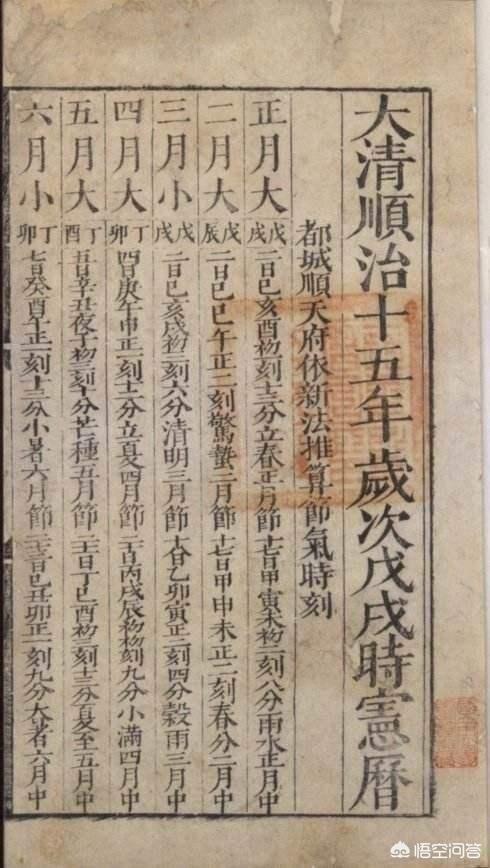 大清順治十五年歲次戊戌時憲曆
都城順天府依新法推算節氣時刻
正月大 戊戌 二日己亥酉初刻十三分立春正月節 十七日甲寅未初三刻八分雨水正月中
二月大 戊辰 二日己巳午正二刻驚蟄二月節 十七日甲申未正二刻春分二月中
三月小 戊戌 二日己亥戌初三刻六分清明三月節 十八日乙卯寅正刻四分穀雨三月中
四月大 丁卯 四日庚午申正一刻十二分立夏四月節 二十日丙戌辰初初刻九分小滿四月中
五月大 丁酉 五日辛丑夜子初三刻十分芒種五月節 二十一日丁巳酉初三刻十三分夏至五月中
六月小 丁卯 七日癸酉午正一刻十三分小暑六月節 二十三日己丑卯正一刻九分大暑六月中
悟空问答